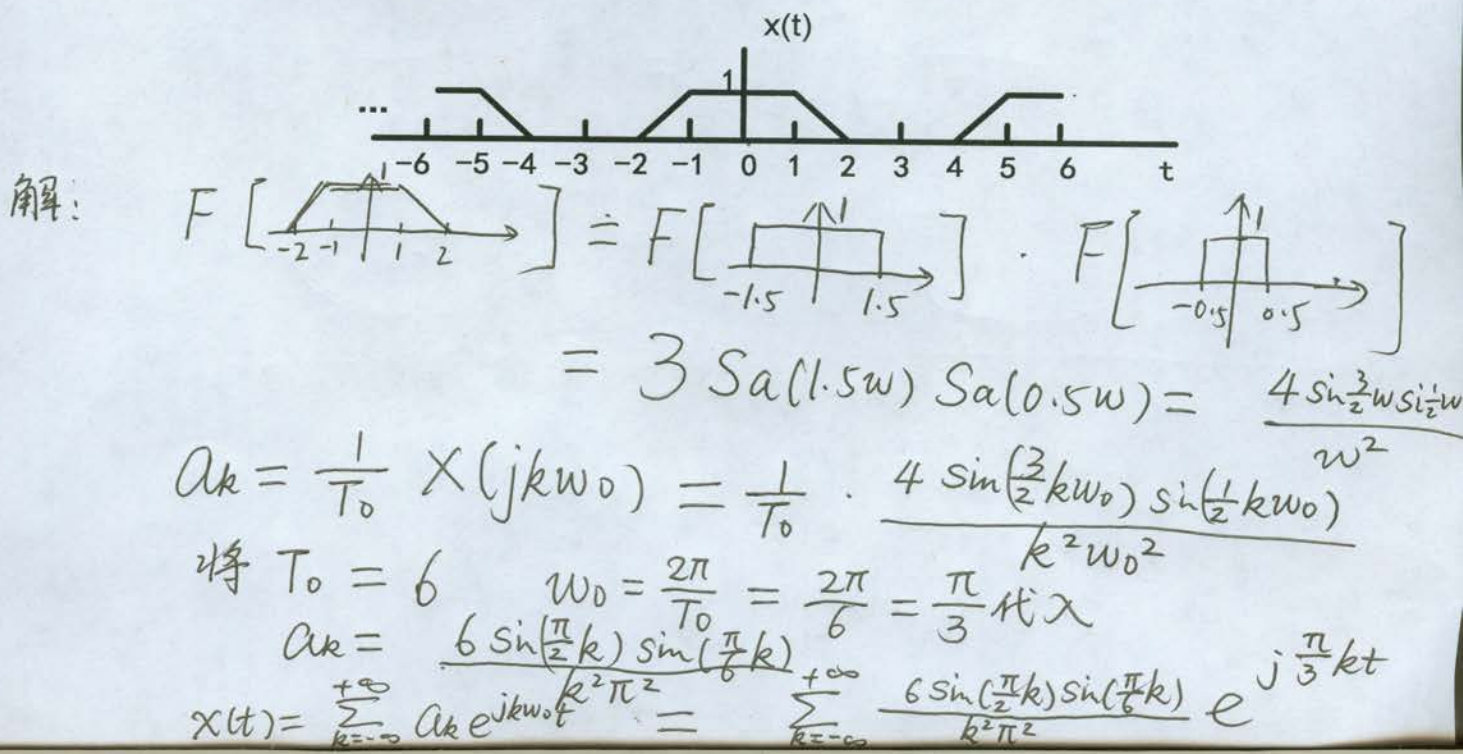 x(t)
1
...
-6 -5 -4 -3 -2 -1 0 1 2 3 4 5 6 t
解: F[ -2 -1 1 2 1 ] = F[ -1.5 1.5 1 ] · F[ -0.5 0.5 1 ]
= 3 Sa(1.5w) Sa(0.5w) = \frac{4 sin\frac{3}{2}w si\frac{1}{2}w}{w^2}
a_k = \frac{1}{T_0} X(jkw_0) = \frac{1}{T_0} · \frac{4 sin(\frac{3}{2}kw_0) sin(\frac{1}{2}kw_0)}{k^2w_0^2}
将 T_0 = 6 w_0 = \frac{2π}{T_0} = \frac{2π}{6} = \frac{π}{3} 代入
a_k = \frac{6 sin(\frac{π}{2}k) sin(\frac{π}{6}k)}{k^2π^2}
x(t) = \sum_{k=-∞}^{+∞} a_k e^{jkw_0t} = \sum_{k=-∞}^{+∞} \frac{6 sin(\frac{π}{2}k) sin(\frac{π}{6}k)}{k^2π^2} e^{j\frac{π}{3}kt}